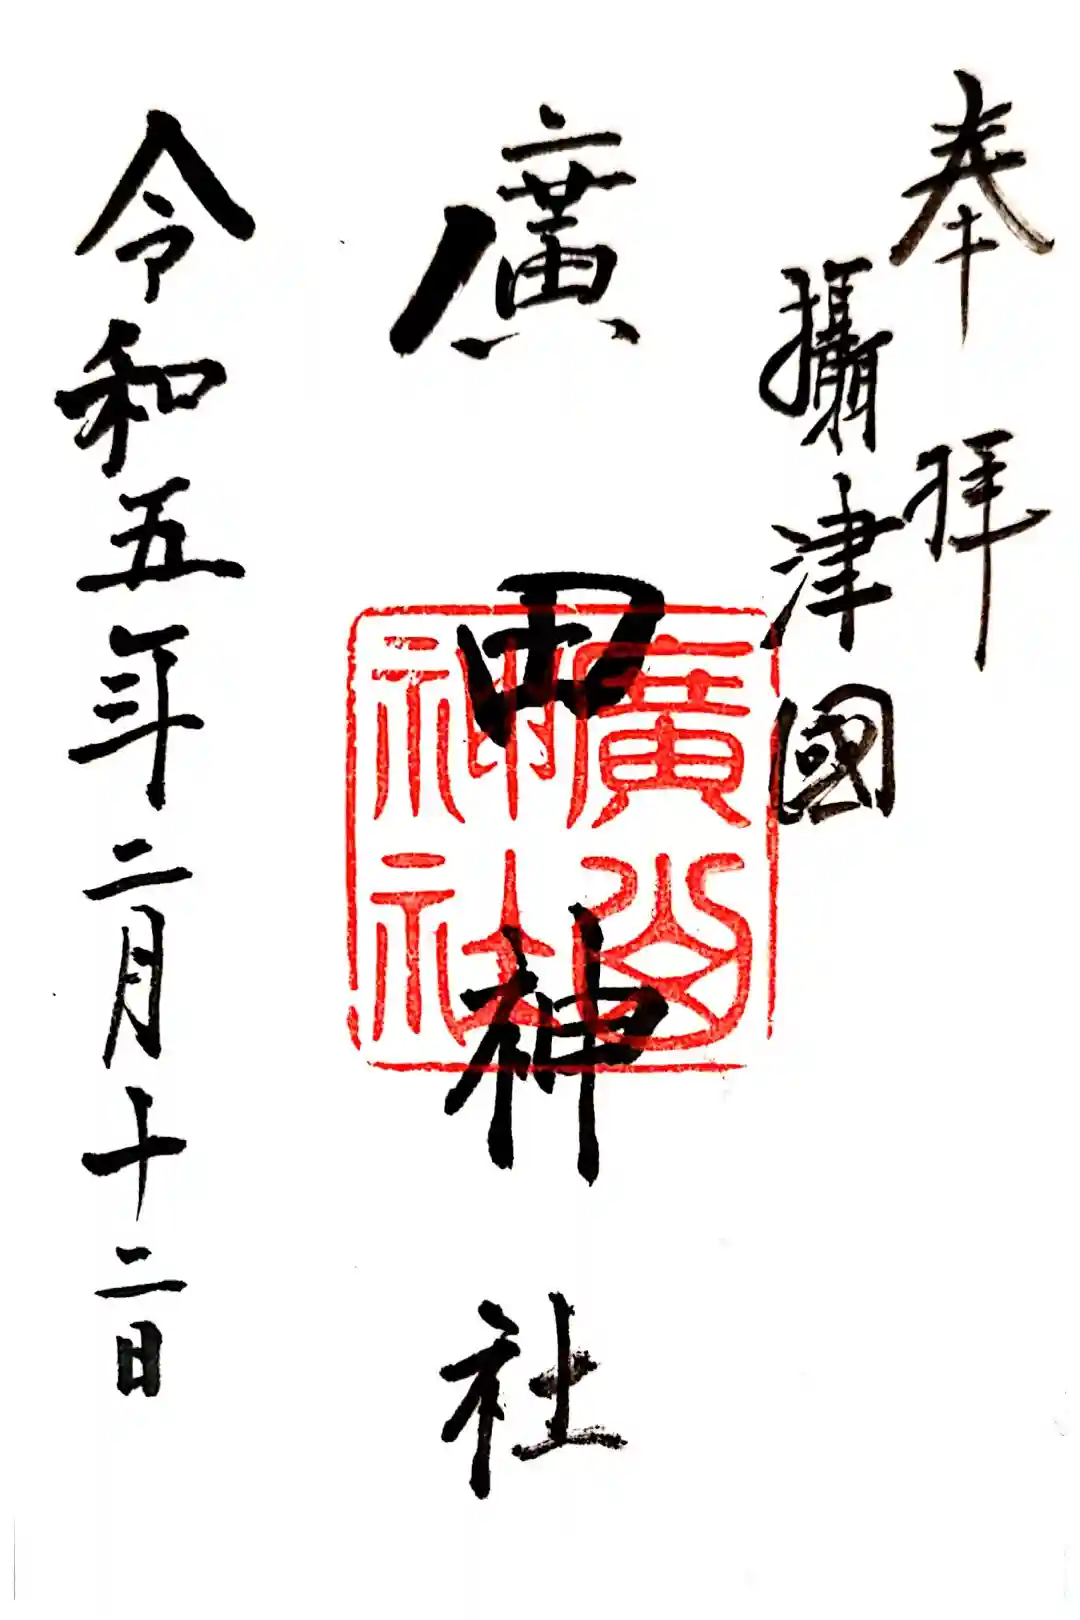 奉拝
攝津國
廣田神社
令和五年二月十二日
廣
神社